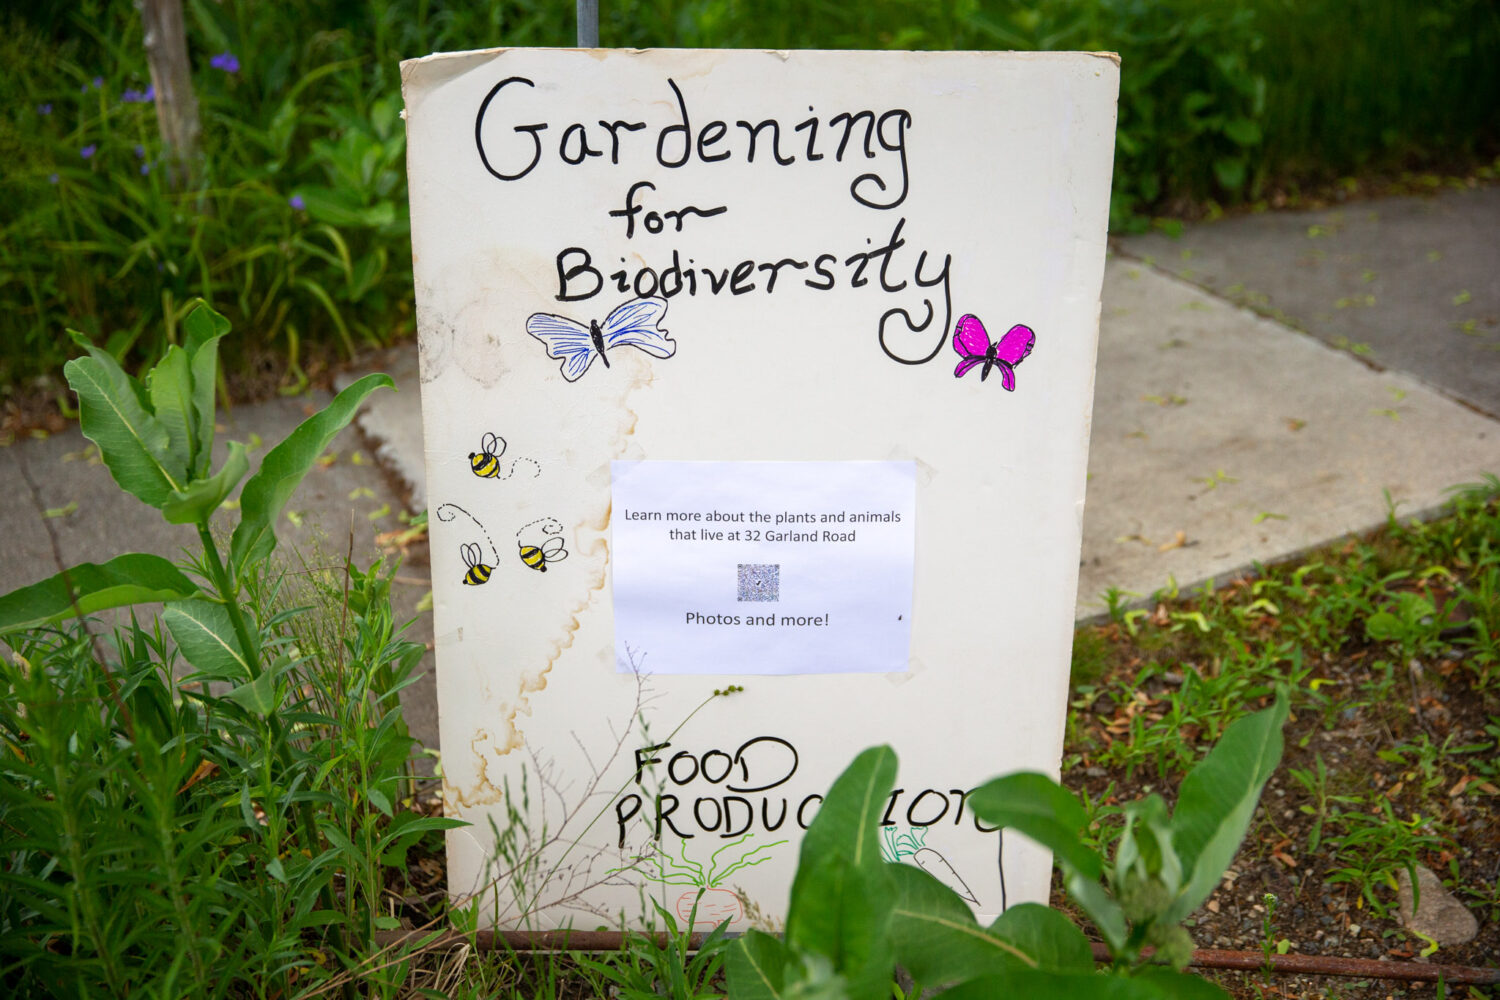 Gardening
for
Biodiversity
Learn more about the plants and animals
that live at 32 Garland Road
Photos and more!
FOOD